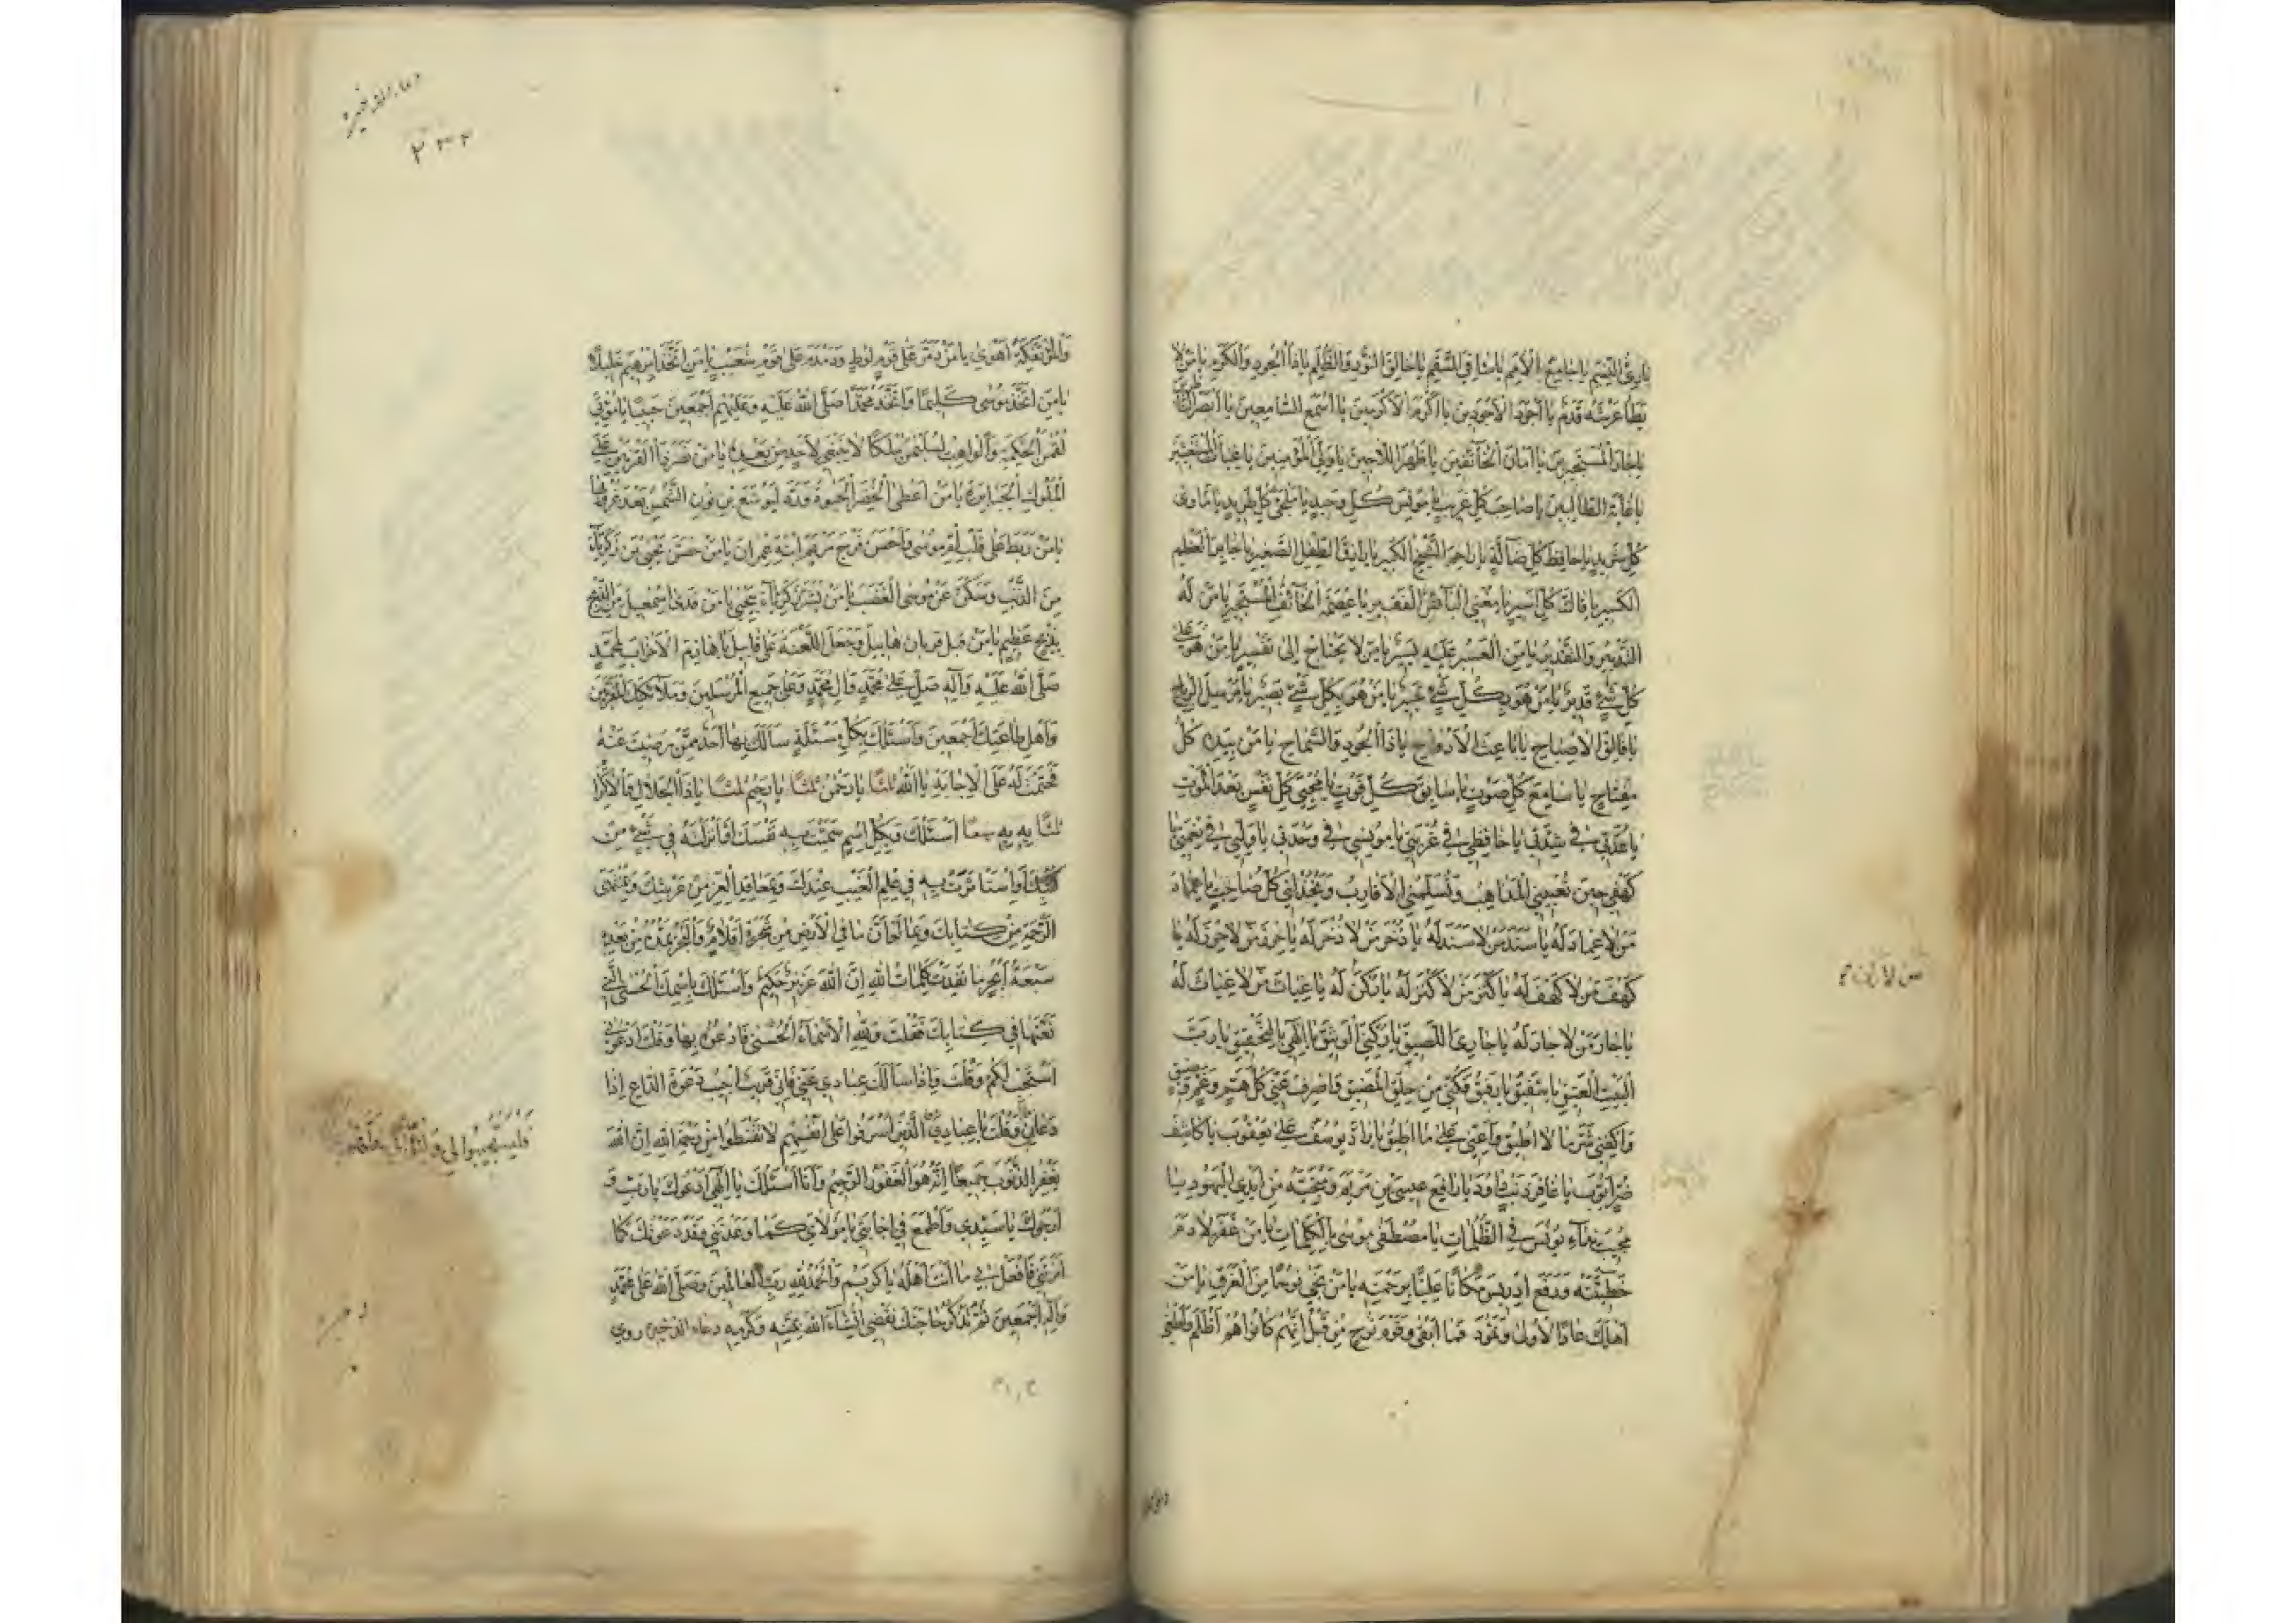 بارِئَ النَّسَمِ يا جامِعَ الْأُمَمِ يا شافِيَ السَّقَمِ يا خالِقَ النُّورِ وَالظُّلَمِ يا ذَا الْجُودِ وَالْكَرَمِ يا مَنْ لا
يَطَأُ عَرْشَهُ قَدَمٌ يا أَجْوَدَ الْأَجْوَدينَ يا أَكْرَمَ الْأَكْرَمينَ يا أَسْمَعَ السّامِعينَ يا أَبْصَرَ النّاظِرينَ
يا جارَ الْمُسْتَجيرينَ يا أَمانَ الْخائِفينَ يا ظَهْرَ اللّاجينَ يا وَلِيَّ الْمُؤْمِنينَ يا غِياثَ الْمُسْتَغيثينَ
يا غايَةَ الطّالِبينَ يا صاحِبَ كُلِّ غَريبٍ يا مُونِسَ كُلِّ وَحيدٍ يا مَلْجَأَ كُلِّ طَريدٍ يا مَأْوى
كُلِّ شَريدٍ يا حافِظَ كُلِّ ضالَّةٍ يا راحِمَ الشَّيْخِ الْكَبيرِ يا رازِقَ الطِّفْلِ الصَّغيرِ يا جابِرَ الْعَظْمِ
الْكَسيرِ يا فاكَّ كُلِّ أَسيرٍ يا مُغْنِيَ الْبائِسِ الْفَقيرِ يا عِصْمَةَ الْخائِفِ الْمُسْتَجيرِ يا مَنْ لَهُ
التَّدْبيرُ وَالتَّقْديرُ يا مَنِ الْعَسيرُ عَلَيْهِ يَسيرٌ يا مَنْ لا يَحْتاجُ إِلى تَفْسيرٍ يا مَنْ هُوَ عَلى
كُلِّ شَيْءٍ قَديرٌ يا مَنْ هُوَ بِكُلِّ شَيْءٍ خَبيرٌ يا مَنْ هُوَ بِكُلِّ شَيْءٍ بَصيرٌ يا مُرْسِلَ الرِّياحِ
يا فالِقَ الْإِصْباحِ يا باعِثَ الْأَرْواحِ يا ذَا الْجُودِ وَالسَّماحِ يا مَنْ بِيَدِهِ كُلُّ
مِفْتاحٍ يا سامِعَ كُلِّ صَوْتٍ يا سابِقَ كُلِّ فَوْتٍ يا مُحْيِيَ كُلِّ نَفْسٍ بَعْدَ الْمَوْتِ
يا عُدَّتي في شِدَّتي يا حافِظي في غُرْبَتي يا مُونِسي في وَحْدَتي يا وَلِيّي في نِعْمَتي يا
كَهْفي حينَ تُعْيينِي الْمَذاهِبُ وَتُسَلِّمُنِي الْأَقارِبُ وَيَخْذُلُني كُلُّ صاحِبٍ يا عِمادَ
مَنْ لا عِمادَ لَهُ يا سَنَدَ مَنْ لا سَنَدَ لَهُ يا ذُخْرَ مَنْ لا ذُخْرَ لَهُ يا حِرْزَ مَنْ لا حِرْزَ لَهُ يا
كَهْفَ مَنْ لا كَهْفَ لَهُ يا كَنْزَ مَنْ لا كَنْزَ لَهُ يا غِياثَ مَنْ لا غِياثَ لَهُ
يا جارَ مَنْ لا جارَ لَهُ يا جارِيَ اللَّصيقَ يا رُكْنِيَ الْوَثيقَ يا إِلهي بِالتَّحْقيقِ يا رَبَّ
الْبَيْتِ الْعَتيقِ يا شَفيقُ يا رَفيقُ فُكَّني مِنْ حَلَقِ الْمَضيقِ وَاصْرِفْ عَنّي كُلَّ هَمٍّ وَغَمٍّ وَضيقٍ
وَاكْفِني شَرَّ ما لا أُطيقُ وَأَعِنّي عَلى ما أُطيقُ يا رادَّ يُوسُفَ عَلى يَعْقُوبَ يا كاشِفَ
ضُرِّ أَيُّوبَ يا غافِرَ ذَنْبِ داوُدَ يا رافِعَ عيسَى بْنِ مَرْيَمَ وَمُنْجِيَهُ مِنْ أَيْدِي الْيَهُودِ يا
مُجيبَ نِداءِ يُونُسَ فِي الظُّلُماتِ يا مُصْطَفِيَ مُوسى بِالْكَلِماتِ يا مَنْ غَفَرَ لِآدَمَ
خَطيئَتَهُ وَرَفَعَ إِدْريسَ مَكانًا عَلِيًّا بِرَحْمَتِهِ يا مَنْ نَجّى نُوحًا مِنَ الْغَرَقِ يا مَنْ
أَهْلَكَ عادًا الْأُولى وَثَمُودَ فَما أَبْقى وَقَوْمَ نُوحٍ مِنْ قَبْلُ إِنَّهُمْ كانُوا هُمْ أَظْلَمَ وَأَطْغى
وَالْمُؤْتَفِكَةَ أَهْوى يا مَنْ دَمَّرَ عَلى قَوْمِ لُوطٍ وَدَمْدَمَ عَلى قَوْمِ شُعَيْبٍ يا مَنِ اتَّخَذَ إِبْرهيمَ خَليلًا
يا مَنِ اتَّخَذَ مُوسى كَليمًا وَاتَّخَذَ مُحَمَّدًا صَلَّى اللهُ عَلَيْهِ وَعَلَيْهِمْ أَجْمَعينَ حَبيبًا يا مُؤْتِيَ
لُقْمنَ الْحِكْمَةَ وَالْواهِبَ لِسُلَيْمنَ مُلْكًا لا يَنْبَغي لِأَحَدٍ مِنْ بَعْدِهِ يا مَنْ نَصَرَ ذَا الْقَرْنَيْنِ عَلَى
الْمُلُوكِ الْجَبابِرَةِ يا مَنْ أَعْطَى الْخِضْرَ الْحَيوةَ وَرَدَّ لِيُوشَعَ بْنِ نُونٍ الشَّمْسَ بَعْدَ غُرُوبِها
يا مَنْ رَبَطَ عَلى قَلْبِ أُمِّ مُوسى وَأَحْصَنَ فَرْجَ مَرْيَمَ ابْنَةِ عِمْرانَ يا مَنْ حَصَّنَ يَحْيَى بْنَ زَكَرِيّا
مِنَ الذَّنْبِ وَسَكَّنَ عَنْ مُوسَى الْغَضَبَ يا مَنْ بَشَّرَ زَكَرِيّاءَ بِيَحْيى يا مَنْ فَدى إِسْمعيلَ مِنَ الذَّبْحِ
بِذِبْحٍ عَظيمٍ يا مَنْ قَبِلَ قُرْبانَ هابيلَ وَجَعَلَ اللَّعْنَةَ عَلى قابيلَ يا هازِمَ الْأَحْزابِ لِمُحَمَّدٍ
صَلَّى اللهُ عَلَيْهِ وَآلِهِ صَلِّ عَلى مُحَمَّدٍ وَآلِ مُحَمَّدٍ وَعَلى جَميعِ الْمُرْسَلينَ وَمَلائِكَتِكَ الْمُقَرَّبينَ
وَأَهْلِ طاعَتِكَ أَجْمَعينَ وَأَسْئَلُكَ بِكُلِّ مَسْئَلَةٍ سَأَلَكَ بِها أَحَدٌ مِمَّنْ رَضيتَ عَنْهُ
فَحَتَمْتَ لَهُ عَلَى الْإِجابَةِ يا اَللهُ ثلثًا يا رَحْمنُ ثلثًا يا رَحيمُ ثلثًا يا ذَا الْجَلالِ وَالْإِكْرامِ
ثلثًا بِهِ بِهِ سبعًا أَسْئَلُكَ وَبِكُلِّ اسْمٍ سَمَّيْتَ بِهِ نَفْسَكَ أَوْ أَنْزَلْتَهُ في شَيْءٍ مِنْ
كُتُبِكَ أَوِ اسْتَأْثَرْتَ بِهِ في عِلْمِ الْغَيْبِ عِنْدَكَ وَبِمَعاقِدِ الْعِزِّ مِنْ عَرْشِكَ وَبِمُنْتَهَى
الرَّحْمَةِ مِنْ كِتابِكَ وَبِما لَوْ أَنَّ ما فِي الْأَرْضِ مِنْ شَجَرَةٍ أَقْلامٌ وَالْبَحْرُ يَمُدُّهُ مِنْ بَعْدِهِ
سَبْعَةُ أَبْحُرٍ ما نَفِدَتْ كَلِماتُ اللهِ إِنَّ اللهَ عَزيزٌ حَكيمٌ وَأَسْئَلُكَ بِاسْمِكَ الْحُسْنَى الَّتي
نَعَتَّها في كِتابِكَ فَقُلْتَ وَلِلّهِ الْأَسْماءُ الْحُسْنى فَادْعُوهُ بِها وَقُلْتَ ادْعُوني
أَسْتَجِبْ لَكُمْ وَقُلْتَ وَإِذا سَأَلَكَ عِبادي عَنّي فَإِنّي قَريبٌ أُجيبُ دَعْوَةَ الدّاعِ إِذا
دَعانِ وَقُلْتَ يا عِبادِيَ الَّذينَ أَسْرَفُوا عَلى أَنْفُسِهِمْ لا تَقْنَطُوا مِنْ رَحْمَةِ اللهِ إِنَّ اللهَ
يَغْفِرُ الذُّنُوبَ جَميعًا إِنَّهُ هُوَ الْغَفُورُ الرَّحيمُ وَأَنَا أَسْئَلُكَ يا إِلهي أَدْعُوكَ يا رَبِّ وَ
أَرْجُوكَ يا سَيِّدي وَأَطْمَعُ في إِجابَتي يا مَوْلايَ كَما وَعَدْتَني وَقَدْ دَعَوْتُكَ كَما
أَمَرْتَني فَافْعَلْ بي ما أَنْتَ أَهْلُهُ يا كَريمُ وَالْحَمْدُ لِلّهِ رَبِّ الْعالَمينَ وَصَلَّى اللهُ عَلى مُحَمَّدٍ
وَآلِهِ أَجْمَعينَ ثُمَّ تَذْكُرُ حاجَتَكَ تُقْضى إِنْشاءَ اللهُ بِمَنِّهِ وَكَرَمِهِ دعاء الذخيره روي
فَلْيَسْتَجيبُوا لي وَلْيُؤْمِنُوا بي لَعَلَّهُمْ